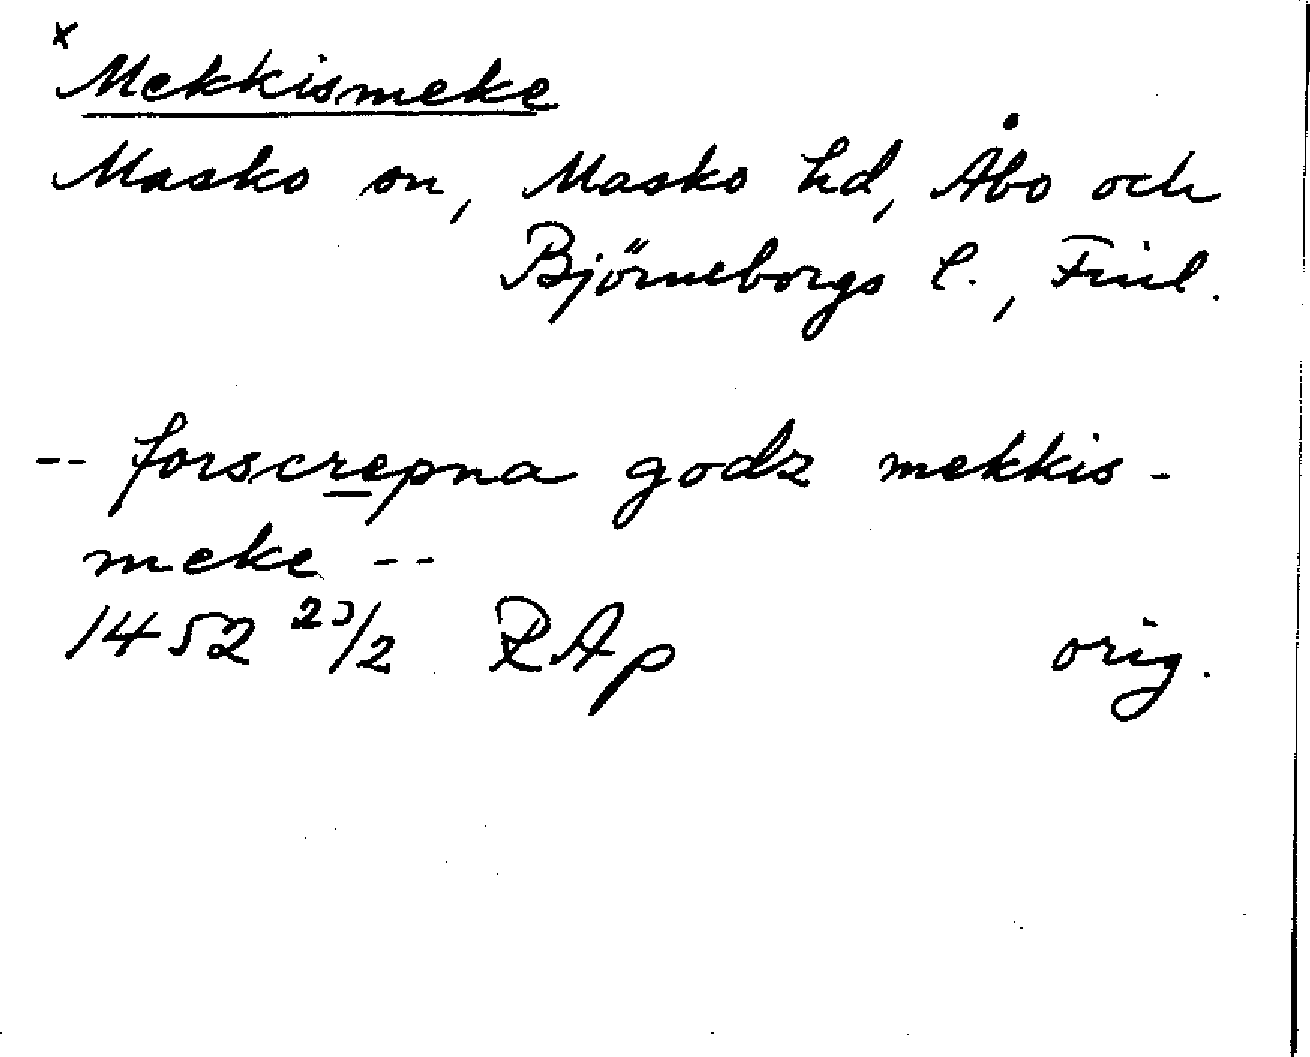 x
Mekkismeke
Masko sn, Masko hd, Åbo och
Björneborgs l., Finl.
-- forscrepna godz mekkis-
meke --
1452 /2 RAp orig.